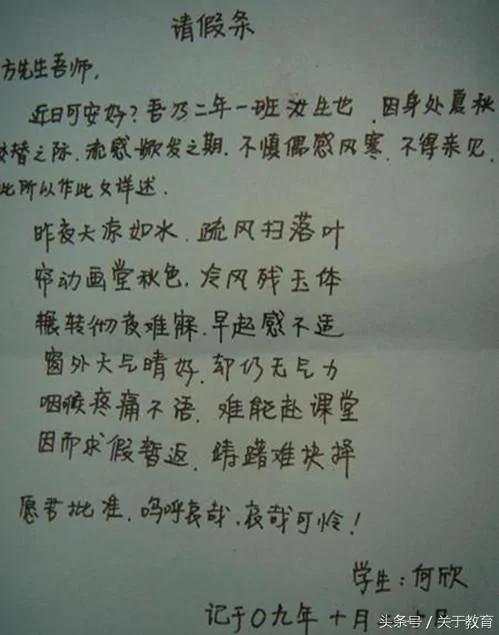 请假条
方先生吾师,
近日可安好?吾乃二年一班汝生也,因身处夏秋
交替之际,流感频发之期,不慎偶感风寒,不得来见,
此所以作此文详述.
昨夜天凉如水,疏风扫落叶
帘动画堂秋色,冷风残玉体
辗转彻夜难寐,早起感不适
窗外天气晴好,却仍无气力
咽喉疼痛不语,难能赴课堂
因而求假暂返,踌躇难抉择
愿君批准,呜呼哀哉,哀哉可怜!
学生:何欣
记于〇九年十月 日
头条号/关于教育